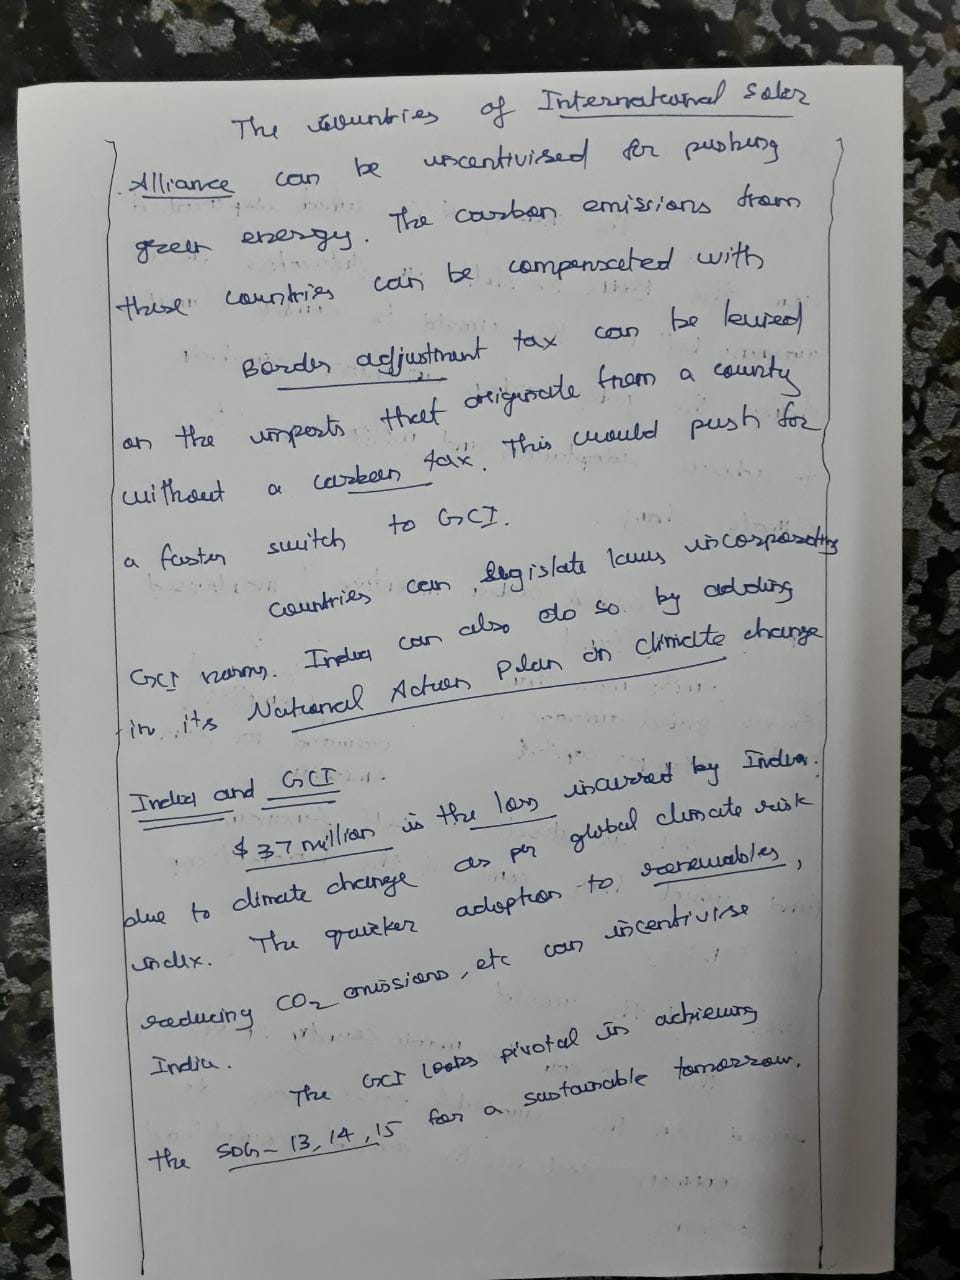 The countries of International Solar
Alliance can be incentivised for pushing
green energy. The carbon emissions from
these countries can be compensated with
Border adjustment tax can be levied
on the imports that originate from a county
without a carbon tax. This would push for
a faster switch to GCI.
Countries can legislate laws incorporating
GCI norms. India can also do so by adding
in its National Action Plan on climate change
India and GCI
$37 million is the loss incurred by India.
due to climate change as per global climate risk
index. The quicker adoption to renewables,
reducing CO2 emissions, etc can incentivise
India.
The GCI looks pivotal in achieving
the SDG - 13, 14, 15 for a sustainable tomorrow.